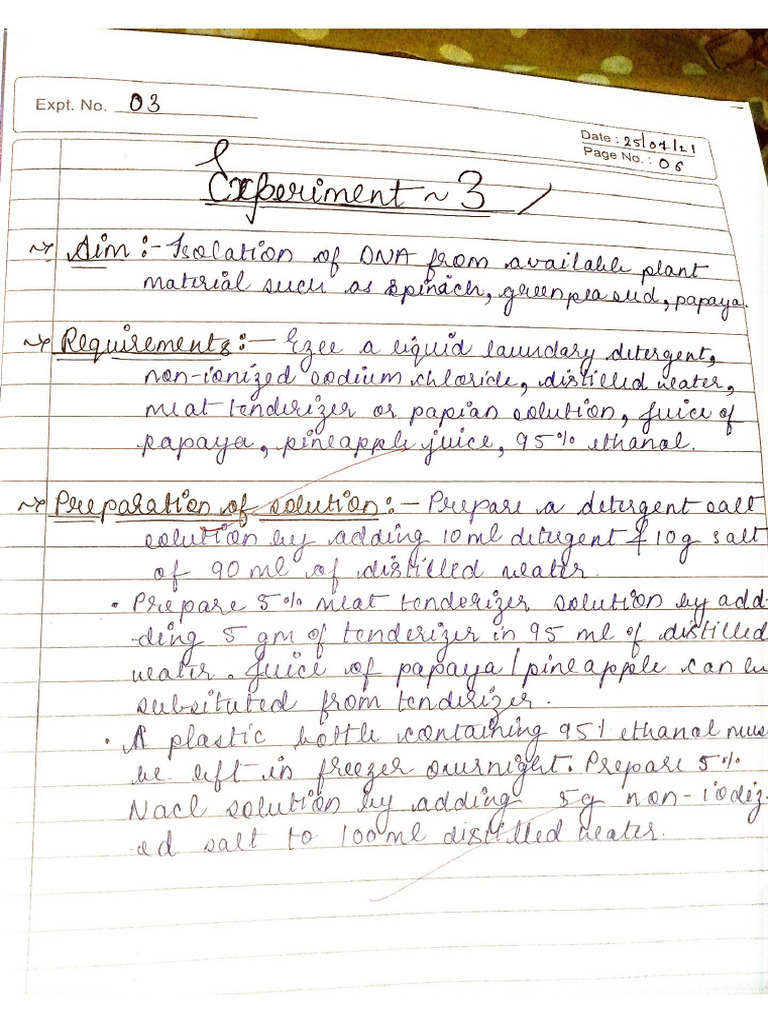 Expt. No. 03
Date : 25/07/21
Page No. : 06
Experiment ~ 3
Aim :- Isolation of DNA from available plant
material such as spinach, green pea sud, papaya.
Requirements :- Ezee a liquid laundary detergent,
non-ionized sodium chloride, distilled water,
meat tenderizer or papian solution, juice of
papaya, pineapple juice, 95% ethanal.
Preparation of solution :- Prepare a detergent salt
solution by adding 10 ml detergent & 10g salt
of 90 ml of distilled water.
• Prepare 5% meat tenderizer solution by add-
-ding 5 gm of tenderizer in 95 ml of distilled
water. Juice of papaya / pineapple can be
subsituted from tenderizer.
• A plastic bottle containing 95% ethanal mus
be left in freezer overnight. Prepare 5%
Nacl solution by adding 5g non-iodiz-
ed salt to 100 ml distilled water.